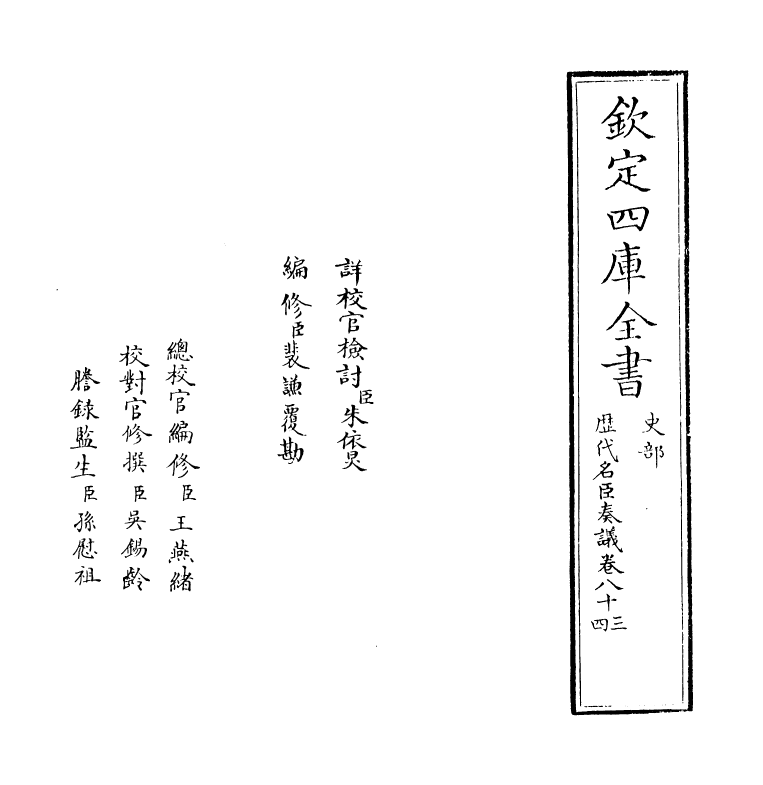 欽定四庫全書
史部
歴代名臣奏議卷八十三四
詳校官檢討臣朱依炅
編修臣裴謙覆勘
總校官編修臣王燕緒
校對官修撰臣吳錫齡
謄錄監生臣孫慰祖